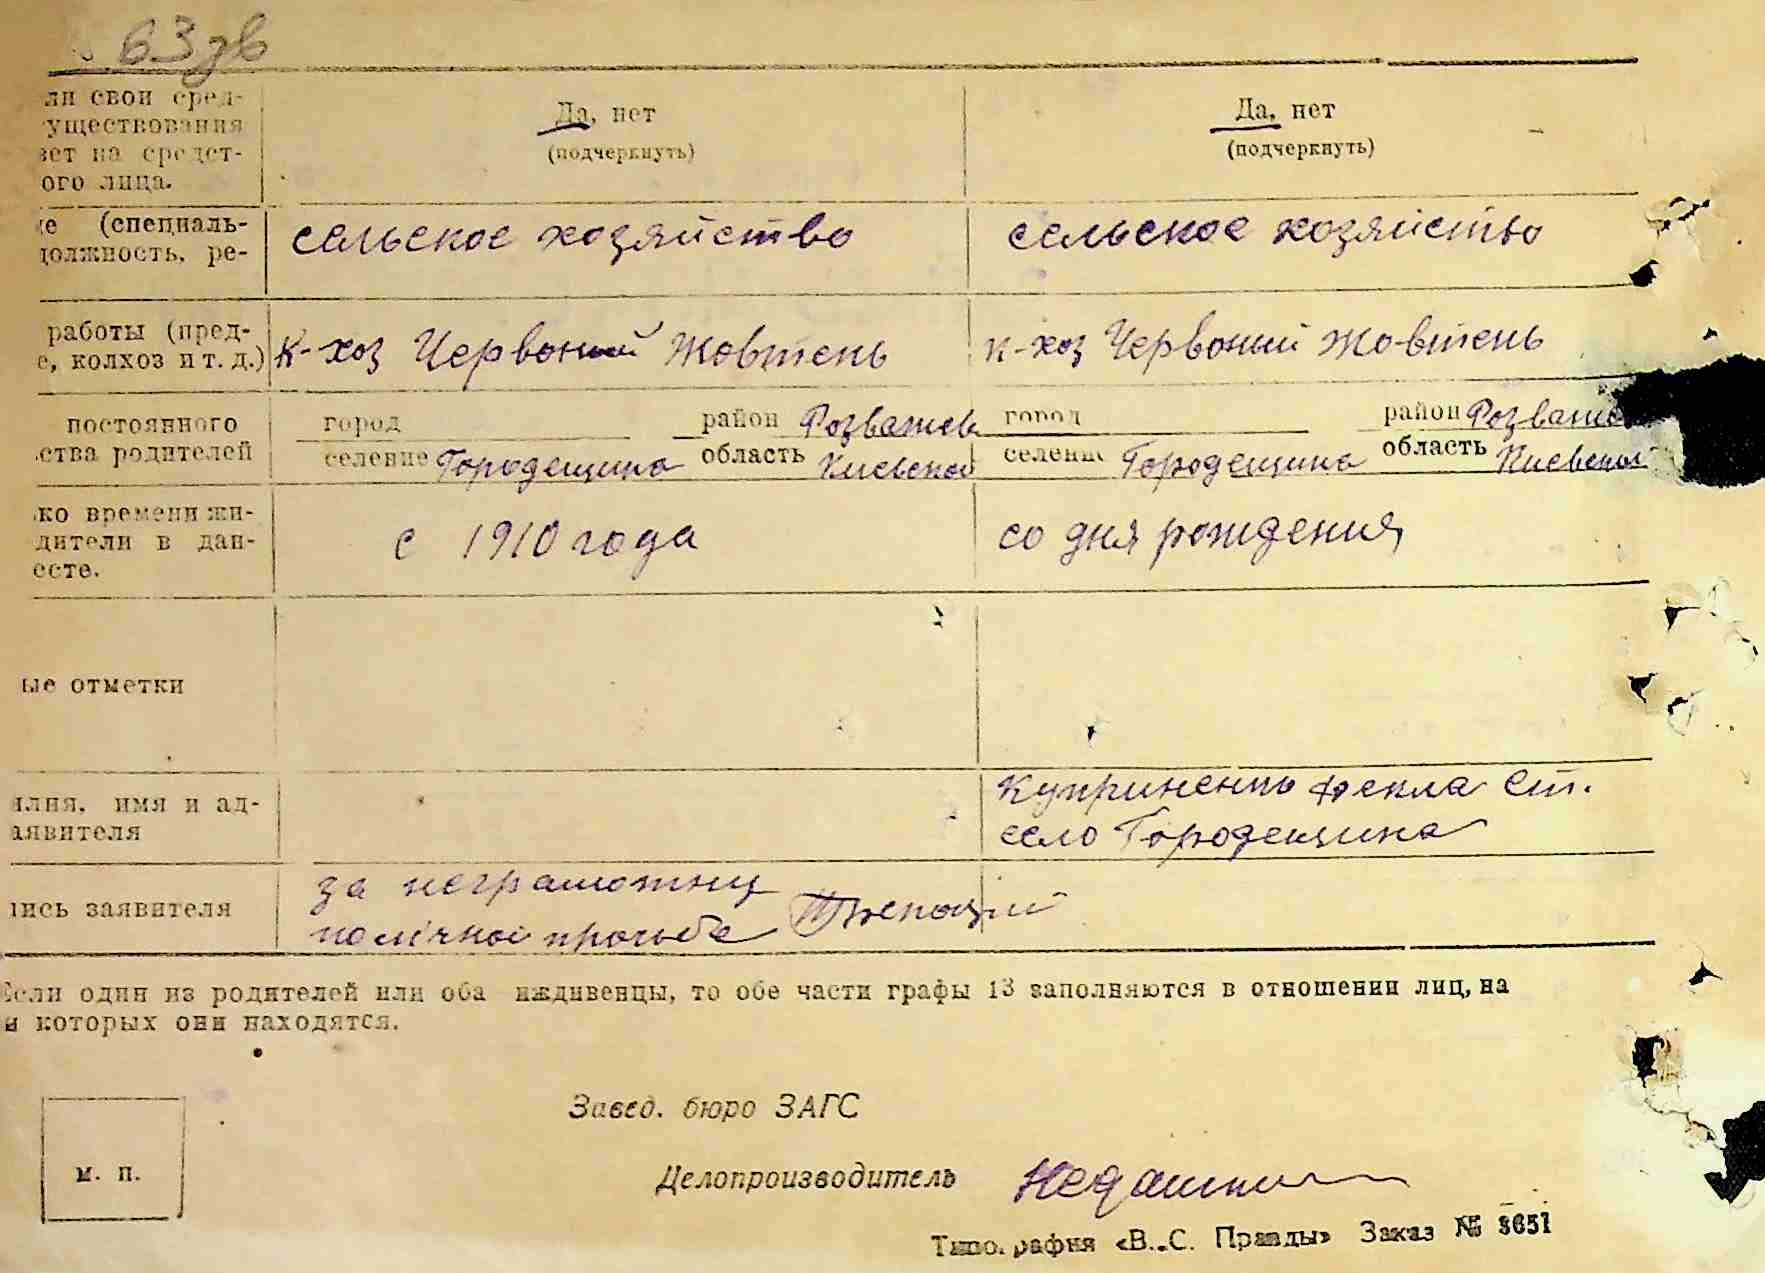 63зв
ли свои сред-
уществования
зет на средст-
ого лица.
Да, нет
(подчеркнуть)
Да, нет
(подчеркнуть)
е (специаль-
должность, ре-
сельское хозяйство
сельское хозяйство
работы (пред-
е, колхоз и т. д.)
к-хоз Червоный Жовтень
к-хоз Червоный Жовтень
постоянного
ства родителей
город
район Розважев
селение Городещина область Киевской
город
район Розваже
селение Городещина область Киевской
ко времени жи-
дители в дан-
есте.
с 1910 года
со дня рождения
ые отметки
илия, имя и ад-
аявителя
Куприненко Фекла Ст.
село Городещина
пись заявителя
за неграмотну
по личной просьбе
Если один из родителей или оба иждивенцы, то обе части графы 13 заполняются в отношении лиц, на
и которых они находятся.
м. п.
Завед. бюро ЗАГС
Делопроизводитель
Типография «В.С. Правды» Заказ № 3651